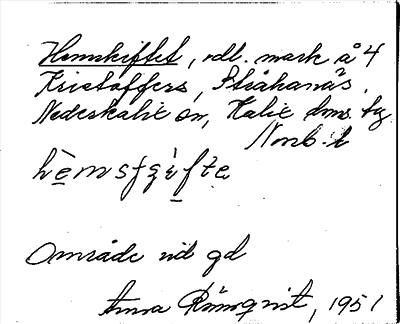 Hemskiftet, odl. mark å 4
Kristoffers, Stråkanäs,
Nederkalix sn, Kalix doms. tg
Norrb. l
hèmsʃɣìfte
Område vid gd
Anna Rönnqvist, 1951